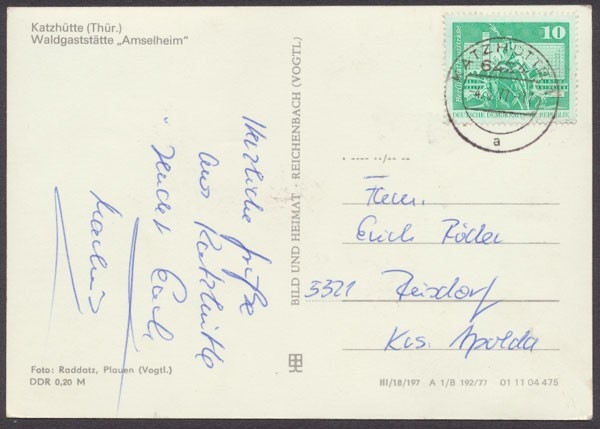 Katzhütte (Thür.)
Waldgaststätte „Amselheim"
Herzliche Grüße
aus Katzhütte
sendet Euch
BILD UND HEIMAT · REICHENBACH (VOGTL)
10
DEUTSCHE DEMOKRATISCHE REPUBLIK
KATZHÜTTE
a
Herrn
Erich
5321 Reisdorf
Krs. Apolda
Foto: Raddatz, Plauen (Vogtl.)
DDR 0,20 M
III/18/197 A 1/B 192/77 01 11 04 475